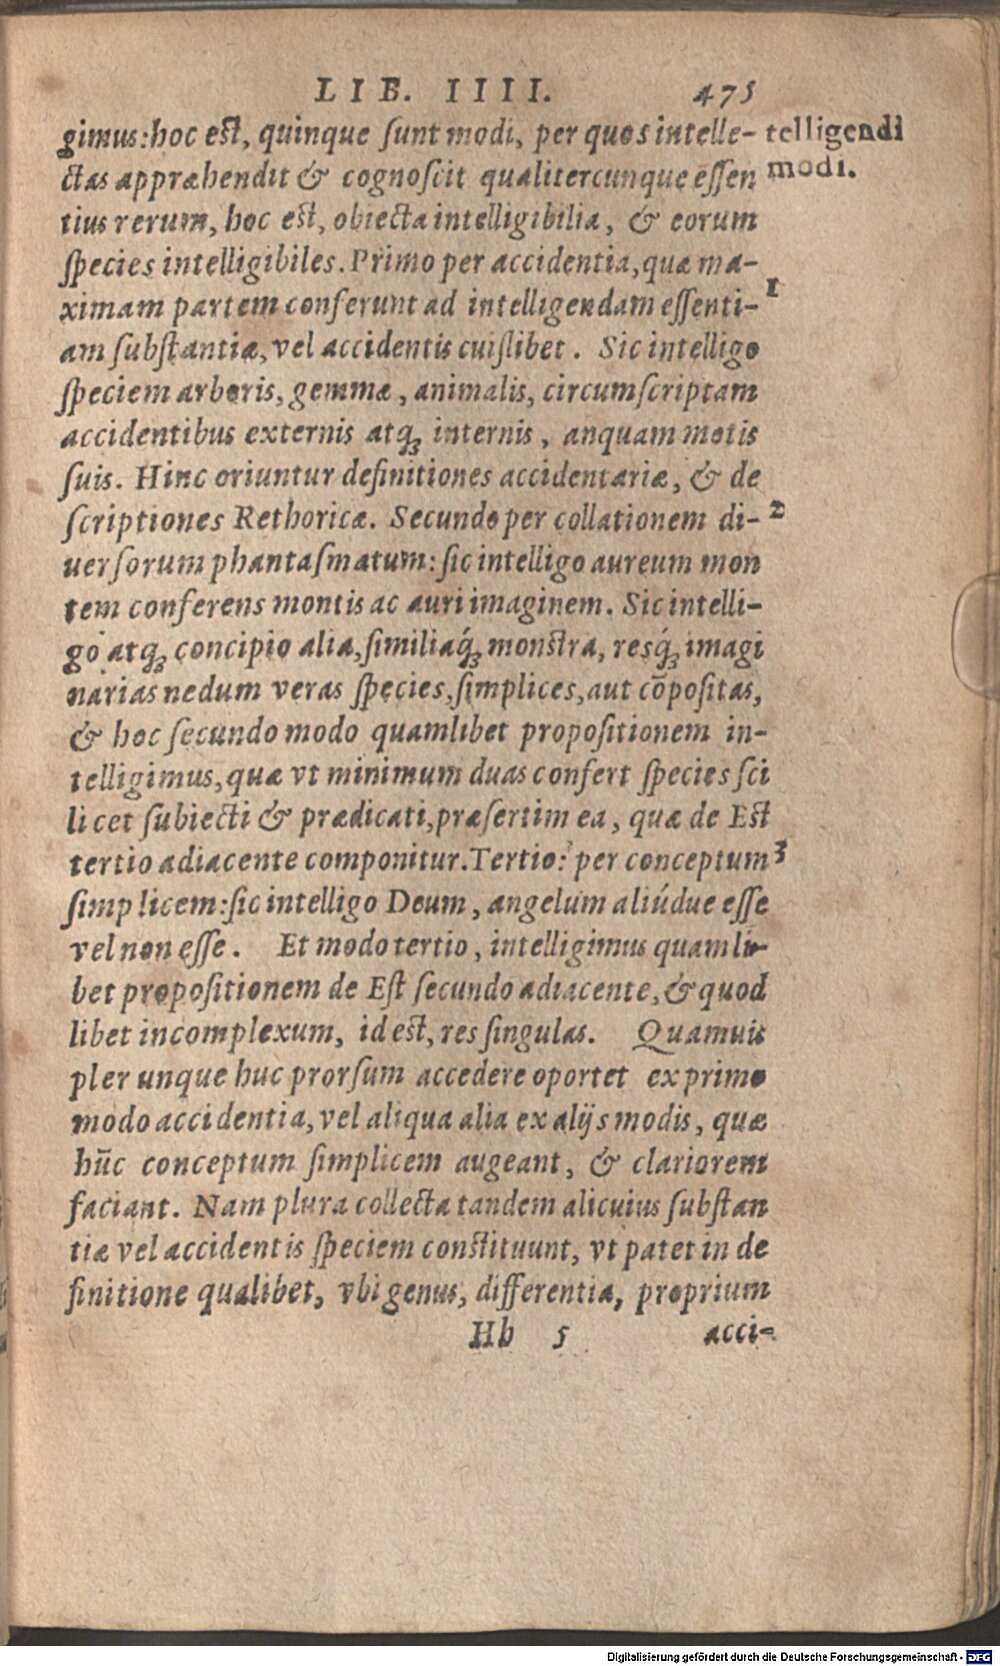 LIB. IIII. 475
gimus: hoc est, quinque sunt modi, per quos intelle- telligendi
ctus appræhendit & cognoscit qualitercunque essen modi.
tius rerum, hoc est, obiecta intelligibilia, & eorum
species intelligibiles. Primo per accidentia, quæ ma-
ximam partem conferunt ad intelligendam essenti- 1
am substantiæ, vel accidentis cuislibet. Sic intelligo
speciem arboris, gemmæ, animalis, circumscriptam
accidentibus externis atq; internis, anquam motis
suis. Hinc oriuntur definitiones accidentariæ, & de
scriptiones Rethoricæ. Secundo per collationem di- 2
uersorum phantasmatum: sic intelligo aureum mon
tem conferens montis ac auri imaginem. Sic intelli-
go atq; concipio alia, similiaq́; monstra, resq́; imagi
narias nedum veras species, simplices, aut cōpositas,
& hoc secundo modo quamlibet propositionem in-
telligimus, quæ vt minimum duas confert species sci
licet subiecti & prædicati, præsertim ea, quæ de Est
tertio adiacente componitur. Tertio: per conceptum 3
simplicem: sic intelligo Deum, angelum aliúdue esse
vel non esse. Et modo tertio, intelligimus quamli-
bet propositionem de Est secundo adiacente, & quod
libet incomplexum, id est, res singulas. Quamuis
plerunque huc prorsum accedere oportet ex primo
modo accidentia, vel aliqua alia ex alijs modis, quæ
hūc conceptum simplicem augeant, & clariorem
faciant. Nam plura collecta tandem alicuius substan
tiæ vel accidentis speciem constituunt, vt patet in de
finitione qualibet, vbi genus, differentia, proprium
Hh 5 acci-
Digitalisierung gefördert durch die Deutsche Forschungsgemeinschaft - DFG